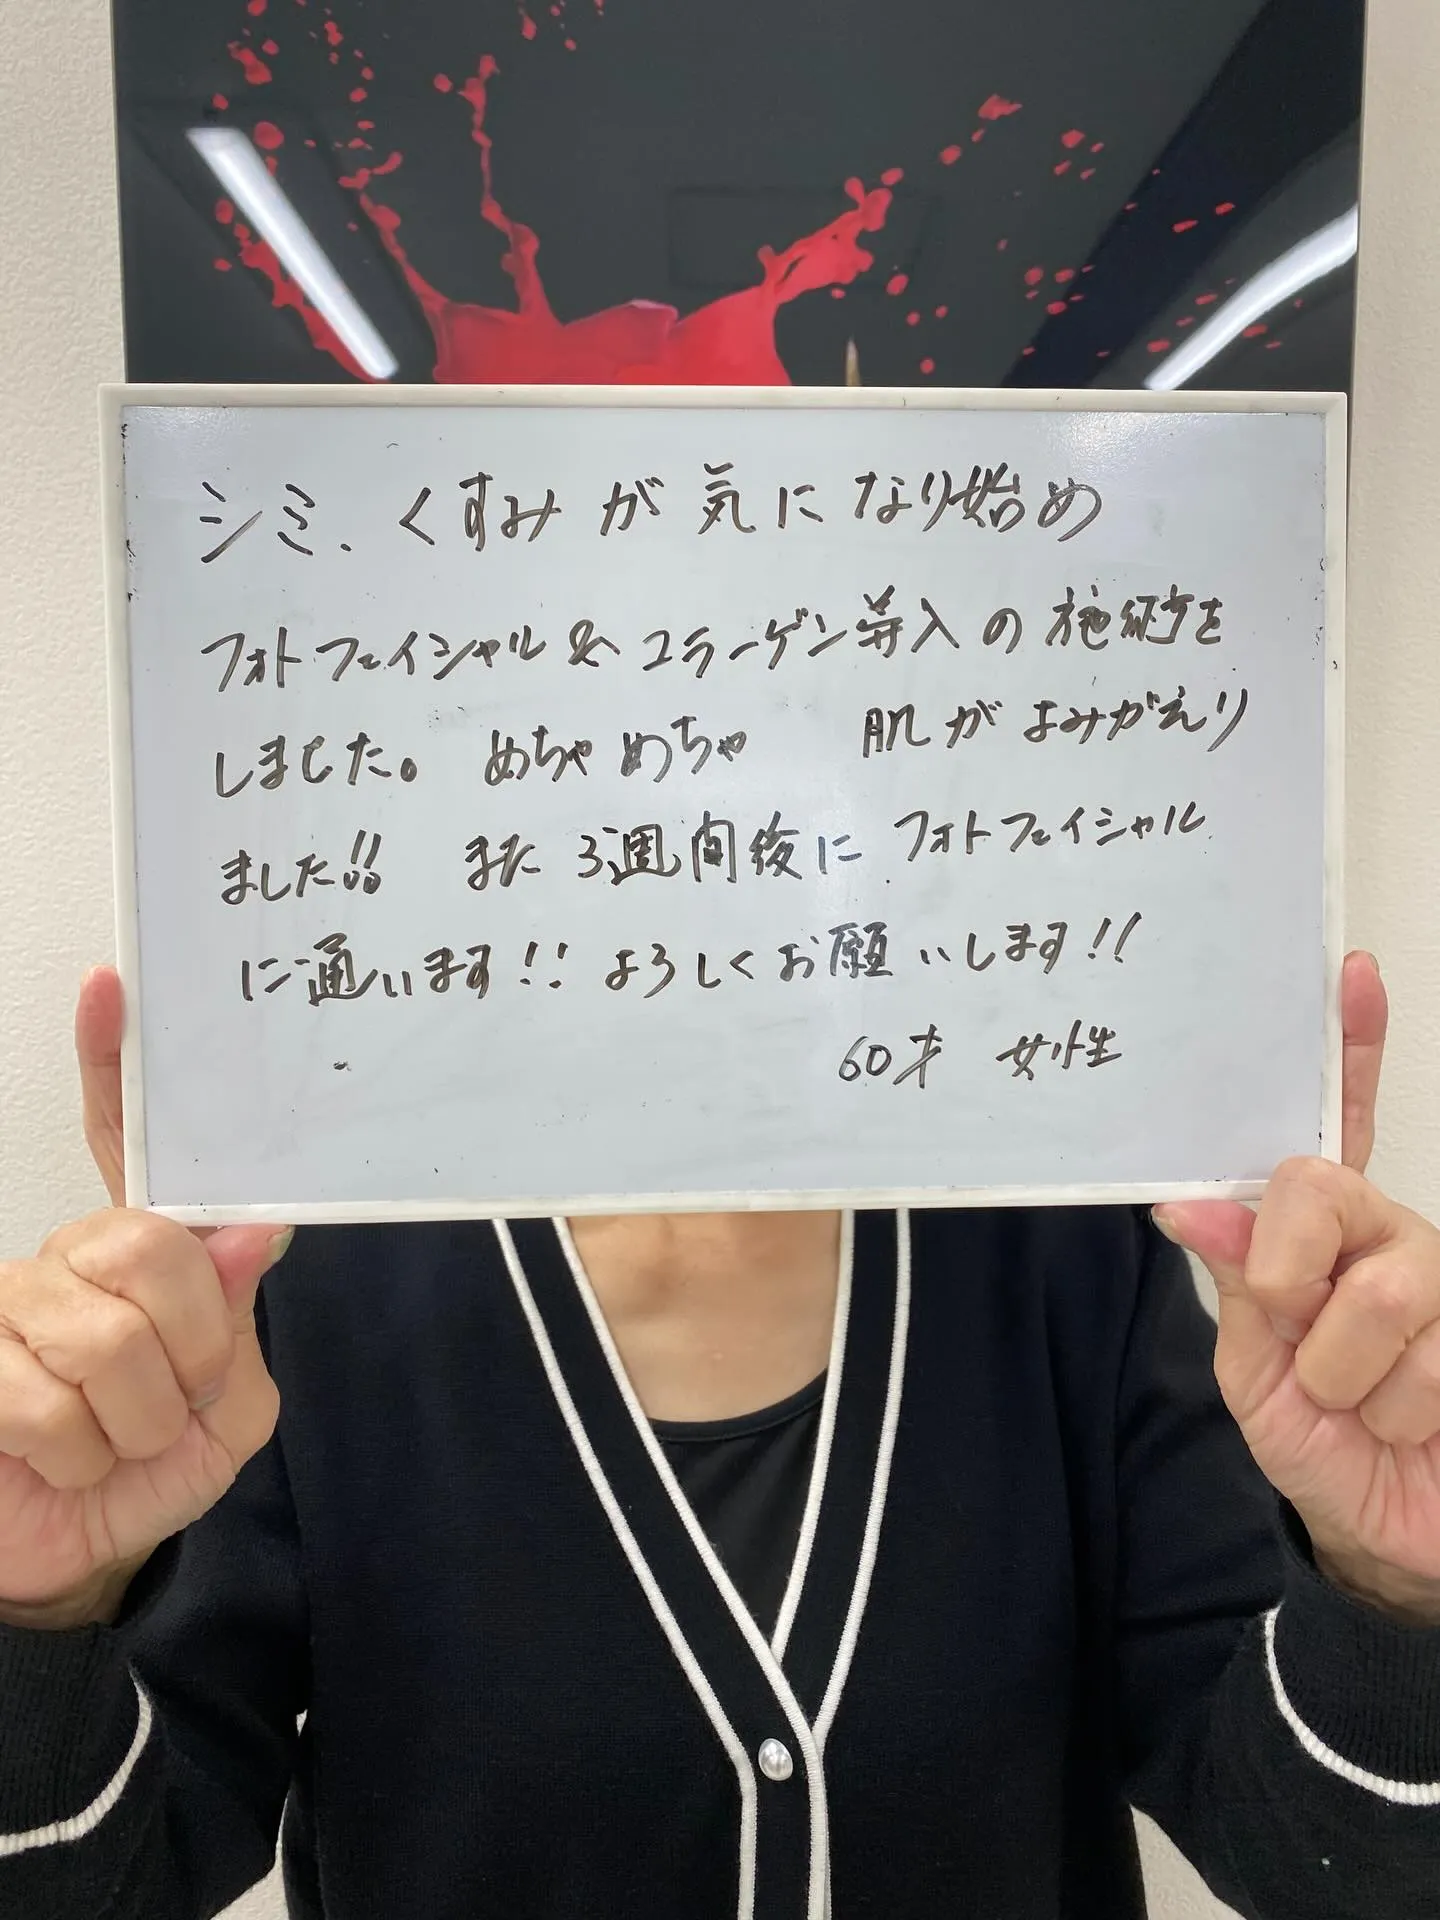 シミ、くすみが気になり始め
フォトフェイシャル&コラーゲン導入の施術を
しました。めちゃめちゃ 肌がよみがえり
ました!! また3週間後にフォトフェイシャル
に通います!! よろしくお願いします!!
60才 女性